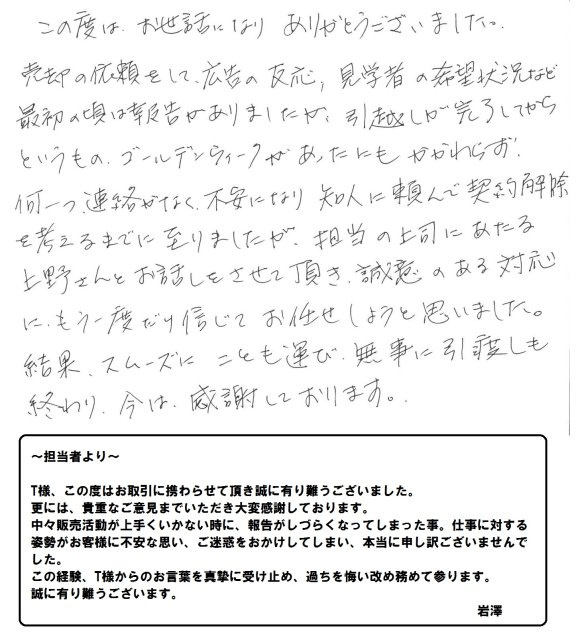 この度は、お世話になり ありがとうございました。
売却の依頼をして、広告の反応、見学者の希望状況など
最初の頃は報告がありましたが、引越しが完了してから
というもの、ゴールデンウィークがあったにもかかわらず、
何一つ連絡がなく、不安になり 知人に頼んで契約解除
を考えるまでに至りましたが、担当の上司にあたる
上野さんとお話しをさせて頂き、誠意のある対応
に、もう一度だけ信じてお任せしようと思いました。
結果、スムーズにことも運び、無事に引渡しも
終わり、今は、感謝しております。
～担当者より～
T様、この度はお取引に携わらせて頂き誠に有り難うございました。
更には、貴重なご意見までいただき大変感謝しております。
中々販売活動が上手くいかない時に、報告がしづらくなってしまった事。仕事に対する
姿勢がお客様に不安な思い、ご迷惑をおかけしてしまい、本当に申し訳ございませんで
した。
この経験、T様からのお言葉を真摯に受け止め、過ちを悔い改め務めて参ります。
誠に有り難うございます。
岩澤